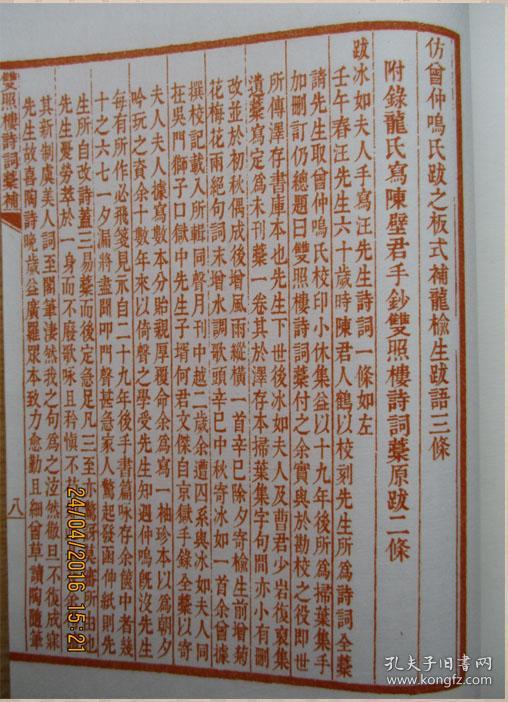 仿曾仲鳴氏跋之板式補龍榆生跋語三條
附錄龍氏寫陳璧君手鈔雙照樓詩詞藁原跋二條
跋冰如夫人手寫汪先生詩詞一條如左
壬午春汪先生六十歲時陳君人鶴以校刻先生所為詩詞全藁
請先生取曾仲鳴氏校印小休集益以十九年後所為掃葉集手
加刪訂仍總題曰雙照樓詩詞藁付之余實與於勘校之役即世
所傳澤存書庫本也先生下世後冰如夫人及曹君少岩復裒集
遺藁寫定為未刊藁一卷其於澤存本掃葉集字句間亦小有刪
改並於初秋偶成後增風雨縱橫一首辛巳除夕寄榆生前增菊
花梅花兩絕句詞未增水調歌頭辛巳中秋寄冰如一首余曾據
撰校記載入所輯同聲月刊中越二歲余遭囚系與冰如夫人同
在吳門獅子口獄中先生子壻何君文傑自京獄手錄全藁以寄
夫人夫人據寫數本分貽親厚覆命余為寫一袖珍本以為朝夕
吟玩之資余十數年來以倚聲之學受先生知遇仲鳴旣沒先生
每有所作必飛箋見示自二十九年後手書篇咏存余篋中者幾
十之六七一夕漏將盡聞叩門聲甚急家人驚起發函伸紙則先
生所自改詩蓋三易藁而後定急足凡三至亦
先生憂勞萃於一身而不廢歌咏且矜慎不
其新制虞美人詞至閣筆淒然我之句為之泫然徹旦不復成寐
先生故喜陶詩晚歲益廣羅眾本致力愈勤且細曾草讀陶隨筆
雙照樓詩詞藁補
八
24/04/2016 15:21
孔夫子旧书网
www.kongfz.com